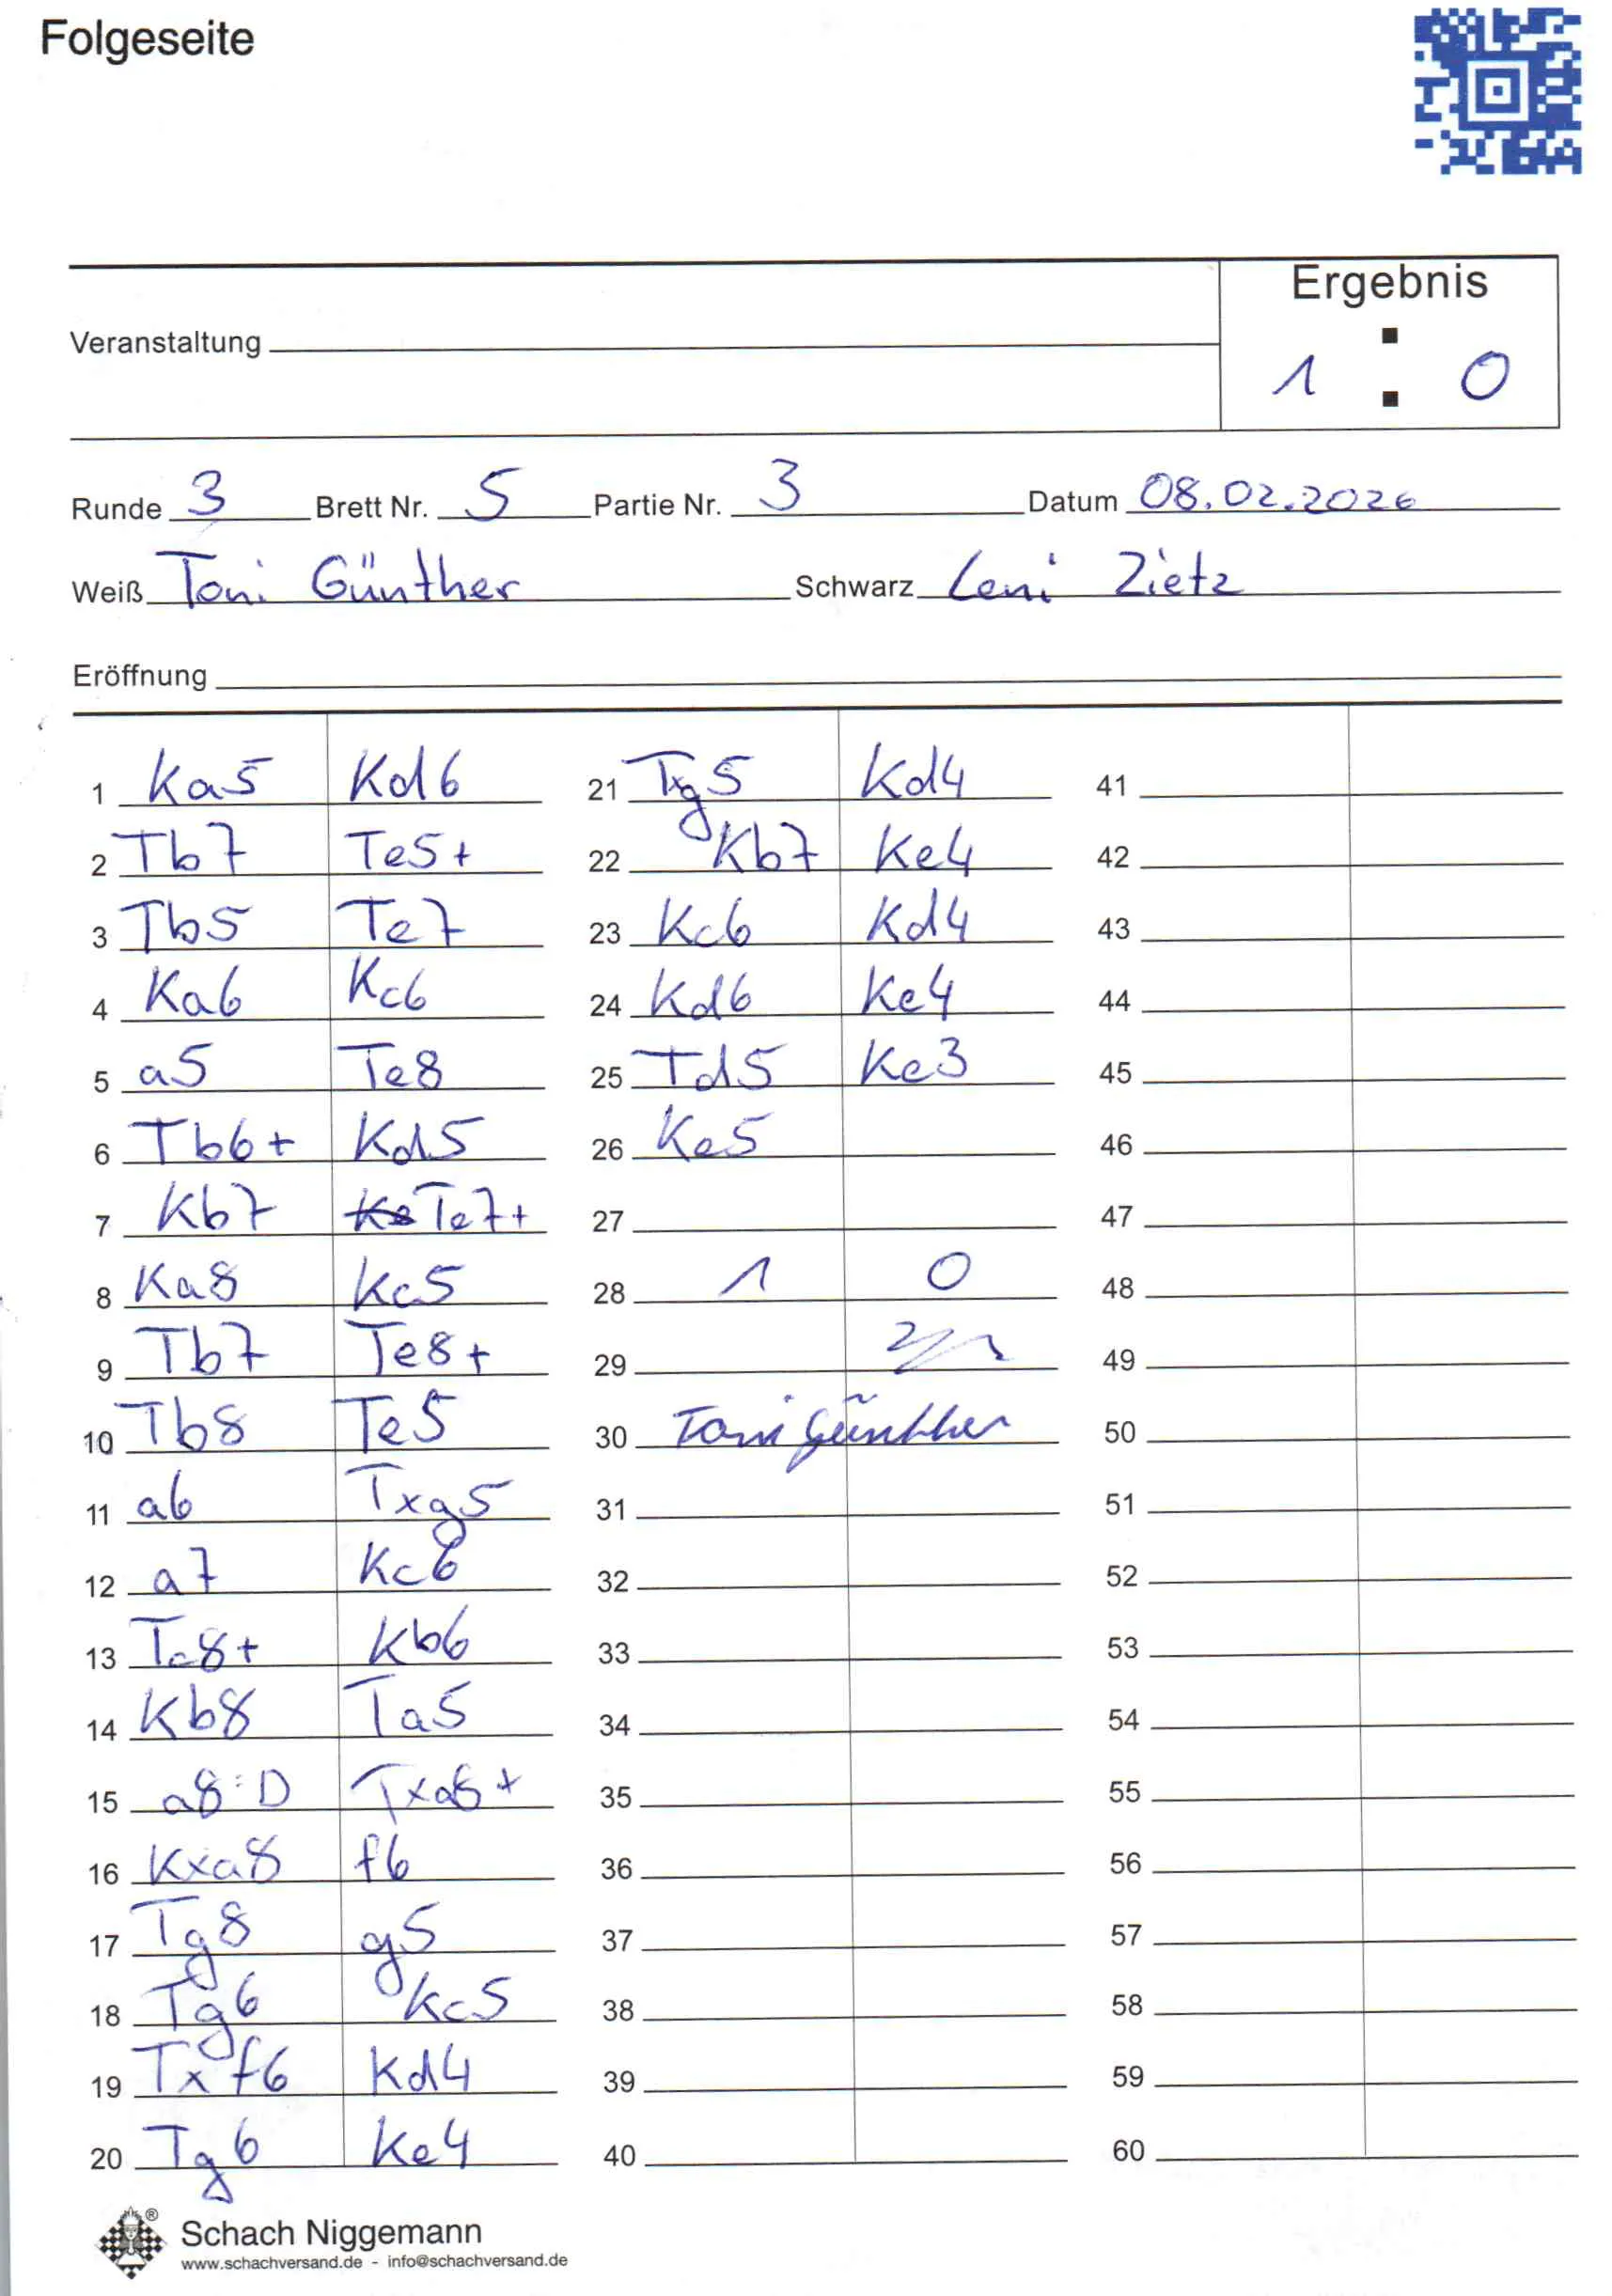 Folgeseite
Ergebnis
Veranstaltung
1 : 0
Runde 3 Brett Nr. 5 Partie Nr. 3 Datum 08.02.2026
Weiß Toni Günther Schwarz Leni Zietz
Eröffnung
1 Ka5 Kd6
2 Tb7 Te5+
3 Tb5 Te7
4 Ka6 Kc6
5 a5 Te8
6 Tb6+ Kd5
7 Kb7 Te7+
8 Ka8 Kc5
9 Tb7 Te8+
10 Tb8 Te5
11 a6 Txg5
12 a7 Kc6
13 Tc8+ Kb6
14 Kb8 Ta5
15 a8:D Txa8+
16 Kxa8 f6
17 Tg8 g5
18 Tg6 Kc5
19 Txf6 Kd4
20 Tg6 Ke4
21 Txg5 Kd4
22 Kb7 Ke4
23 Kc6 Kd4
24 Kd6 Ke4
25 Td5 Ke3
26 Ke5
27
28 1 0
29
30 Toni Günther
31
32
33
34
35
36
37
38
39
40
41
42
43
44
45
46
47
48
49
50
51
52
53
54
55
56
57
58
59
60
Schach Niggemann
www.schachversand.de - info@schachversand.de